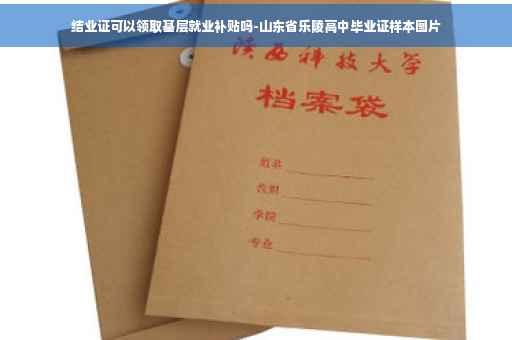 结业证可以领取基层就业补贴吗-山东省乐陵高中毕业证样本图片
陕西科技大学
档案袋
姓名
学院
专业